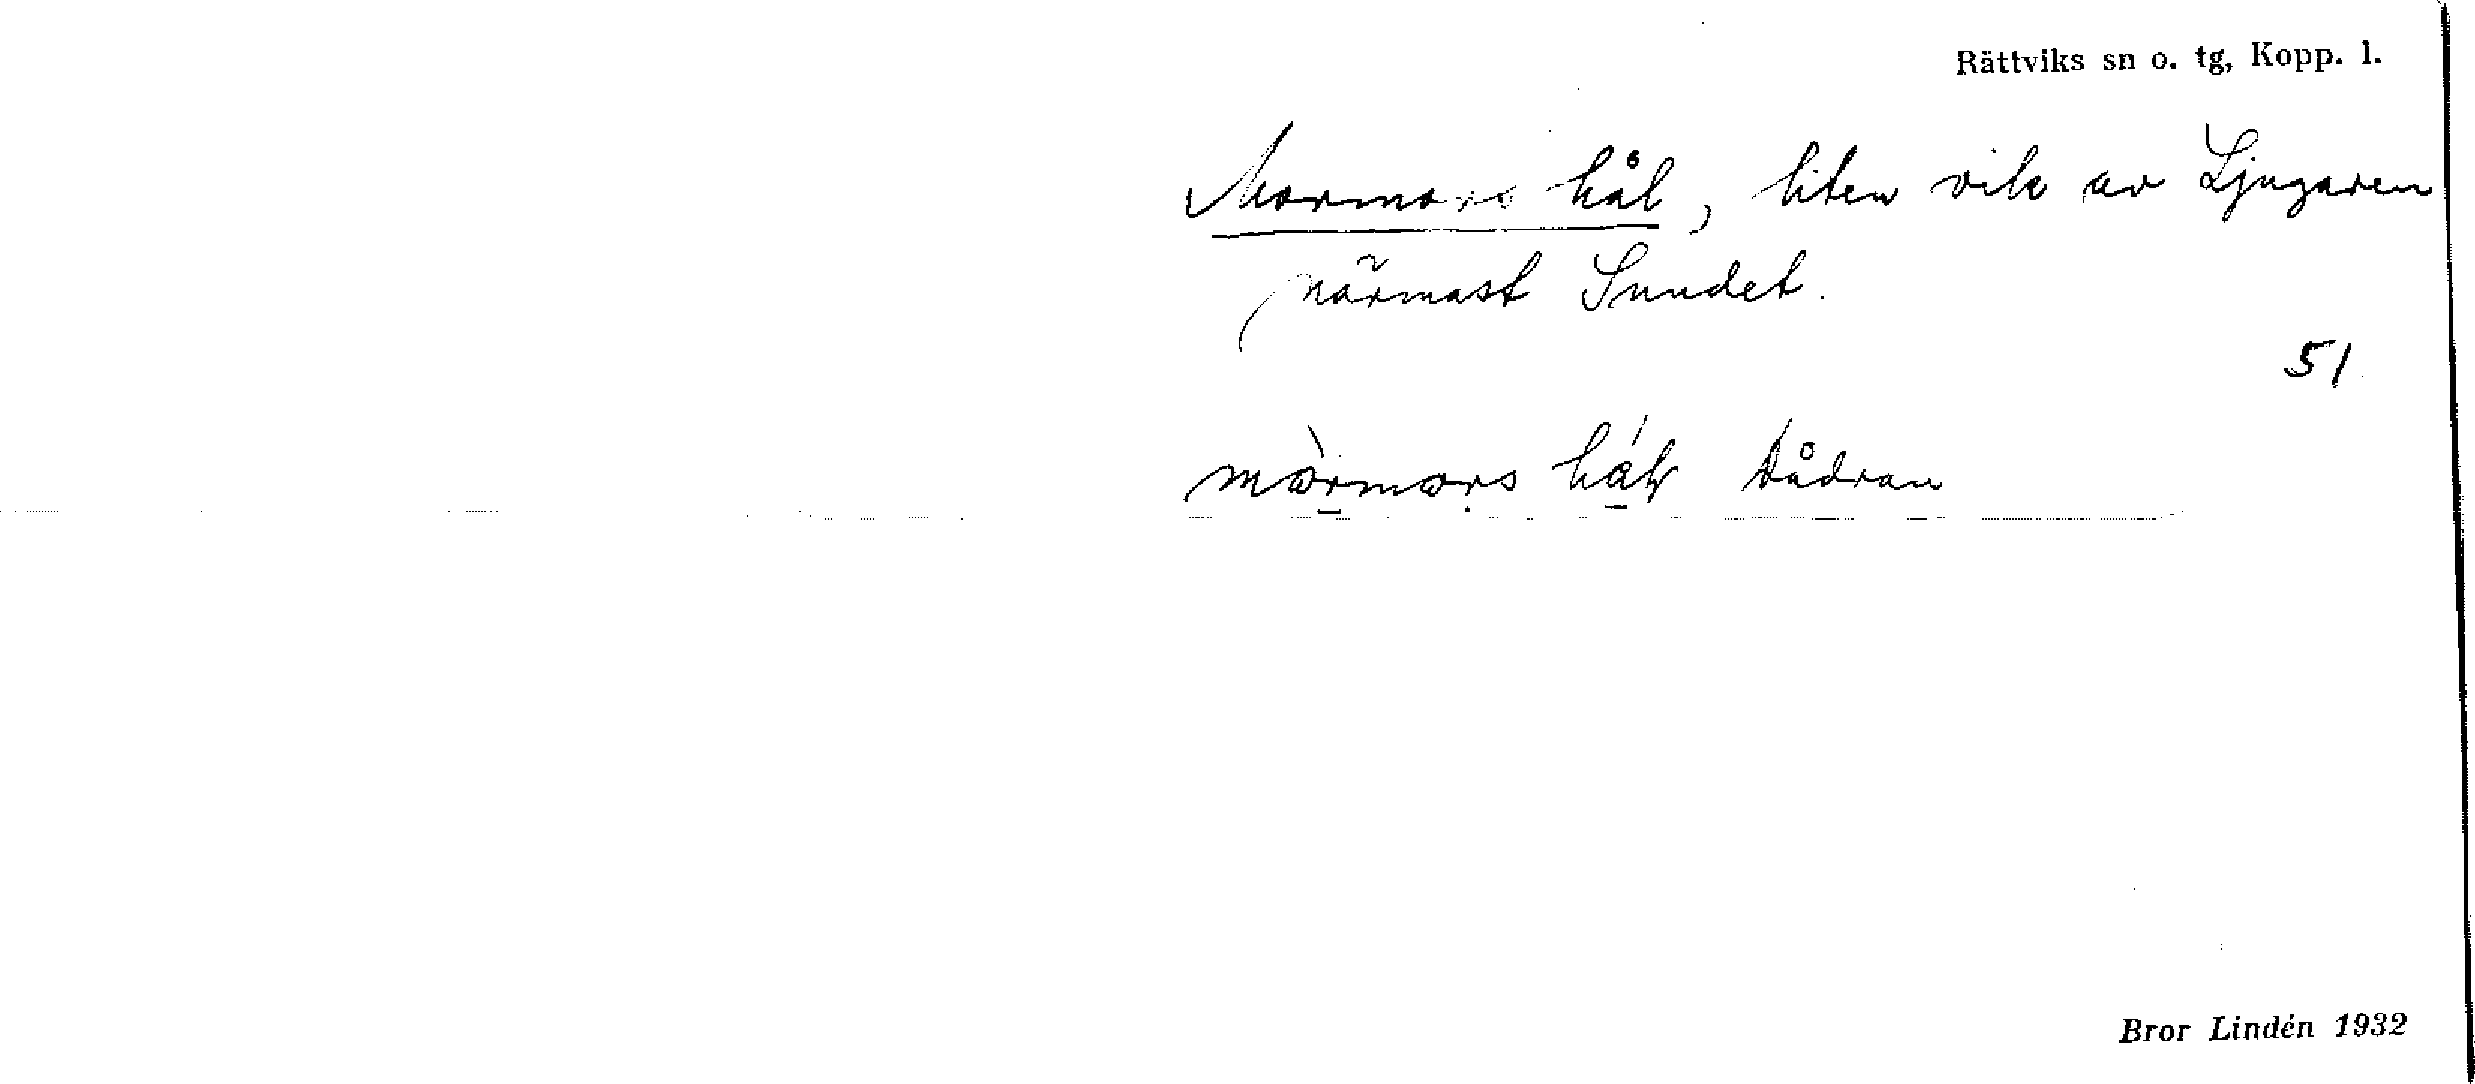 Rättviks sn o. tg, Kopp. l.
Mormors hål, liten vik av Ljugaren
närmast Sundet.
51
Dådran
Bror Lindén 1932